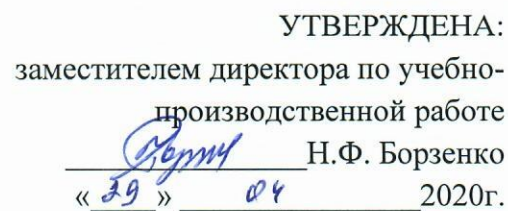 УТВЕРЖДЕНА:
заместителем директора по учебно-
производственной работе
Н.Ф. Борзенко
« 29 » 04 2020г.